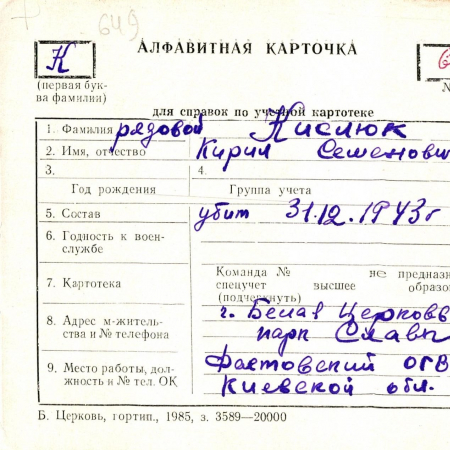 649
АЛФАВИТНАЯ КАРТОЧКА
К
(первая бук-
ва фамилии)
для справок по учетной картотеке
1. Фамилия рядовой Кислюк
2. Имя, отчество Кирил Семенови
3.
4.
Год рождения
Группа учета
5. Состав убит 31.12.1943г
6. Годность к воен-
службе
7. Картотека
Команда № не предназн
спецучет высшее образо
(подчеркнуть)
8. Адрес м-житель-
ства и № телефона
г. Белая Церковь
парк Славы
9. Место работы, дол-
жность и № тел. ОК
Фастовский ОГВ
Киевской обл.
Б. Церковь, гортип., 1985, з. 3589—20000